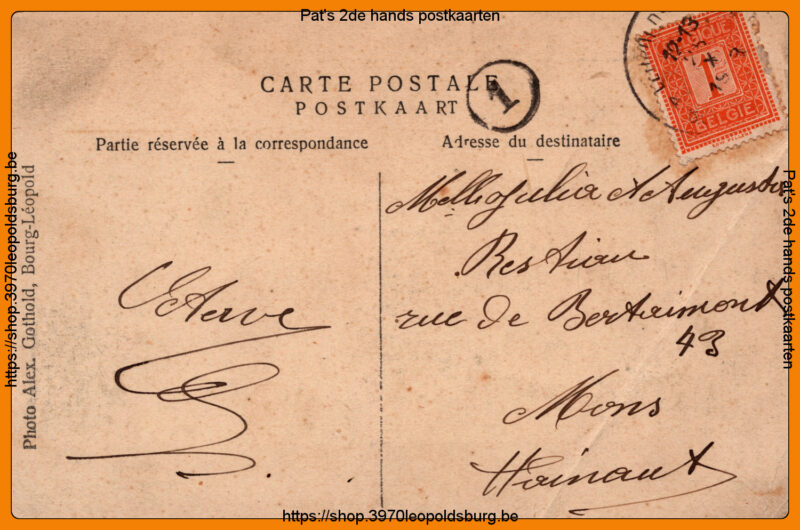 Pat's 2de hands postkaarten
CARTE POSTALE
POSTKAART
1
12-13
BELGIQUE
1
BELGIE
Partie réservée à la correspondance
Adresse du destinataire
Melles Julia et Augusta
Restiau
rue de Bertaimont
43
Mons
Hainaut
Octave
Photo Alex. Gothold, Bourg-Léopold
https://shop.3970leopoldsburg.be
Pat's 2de hands postkaarten
https://shop.3970leopoldsburg.be